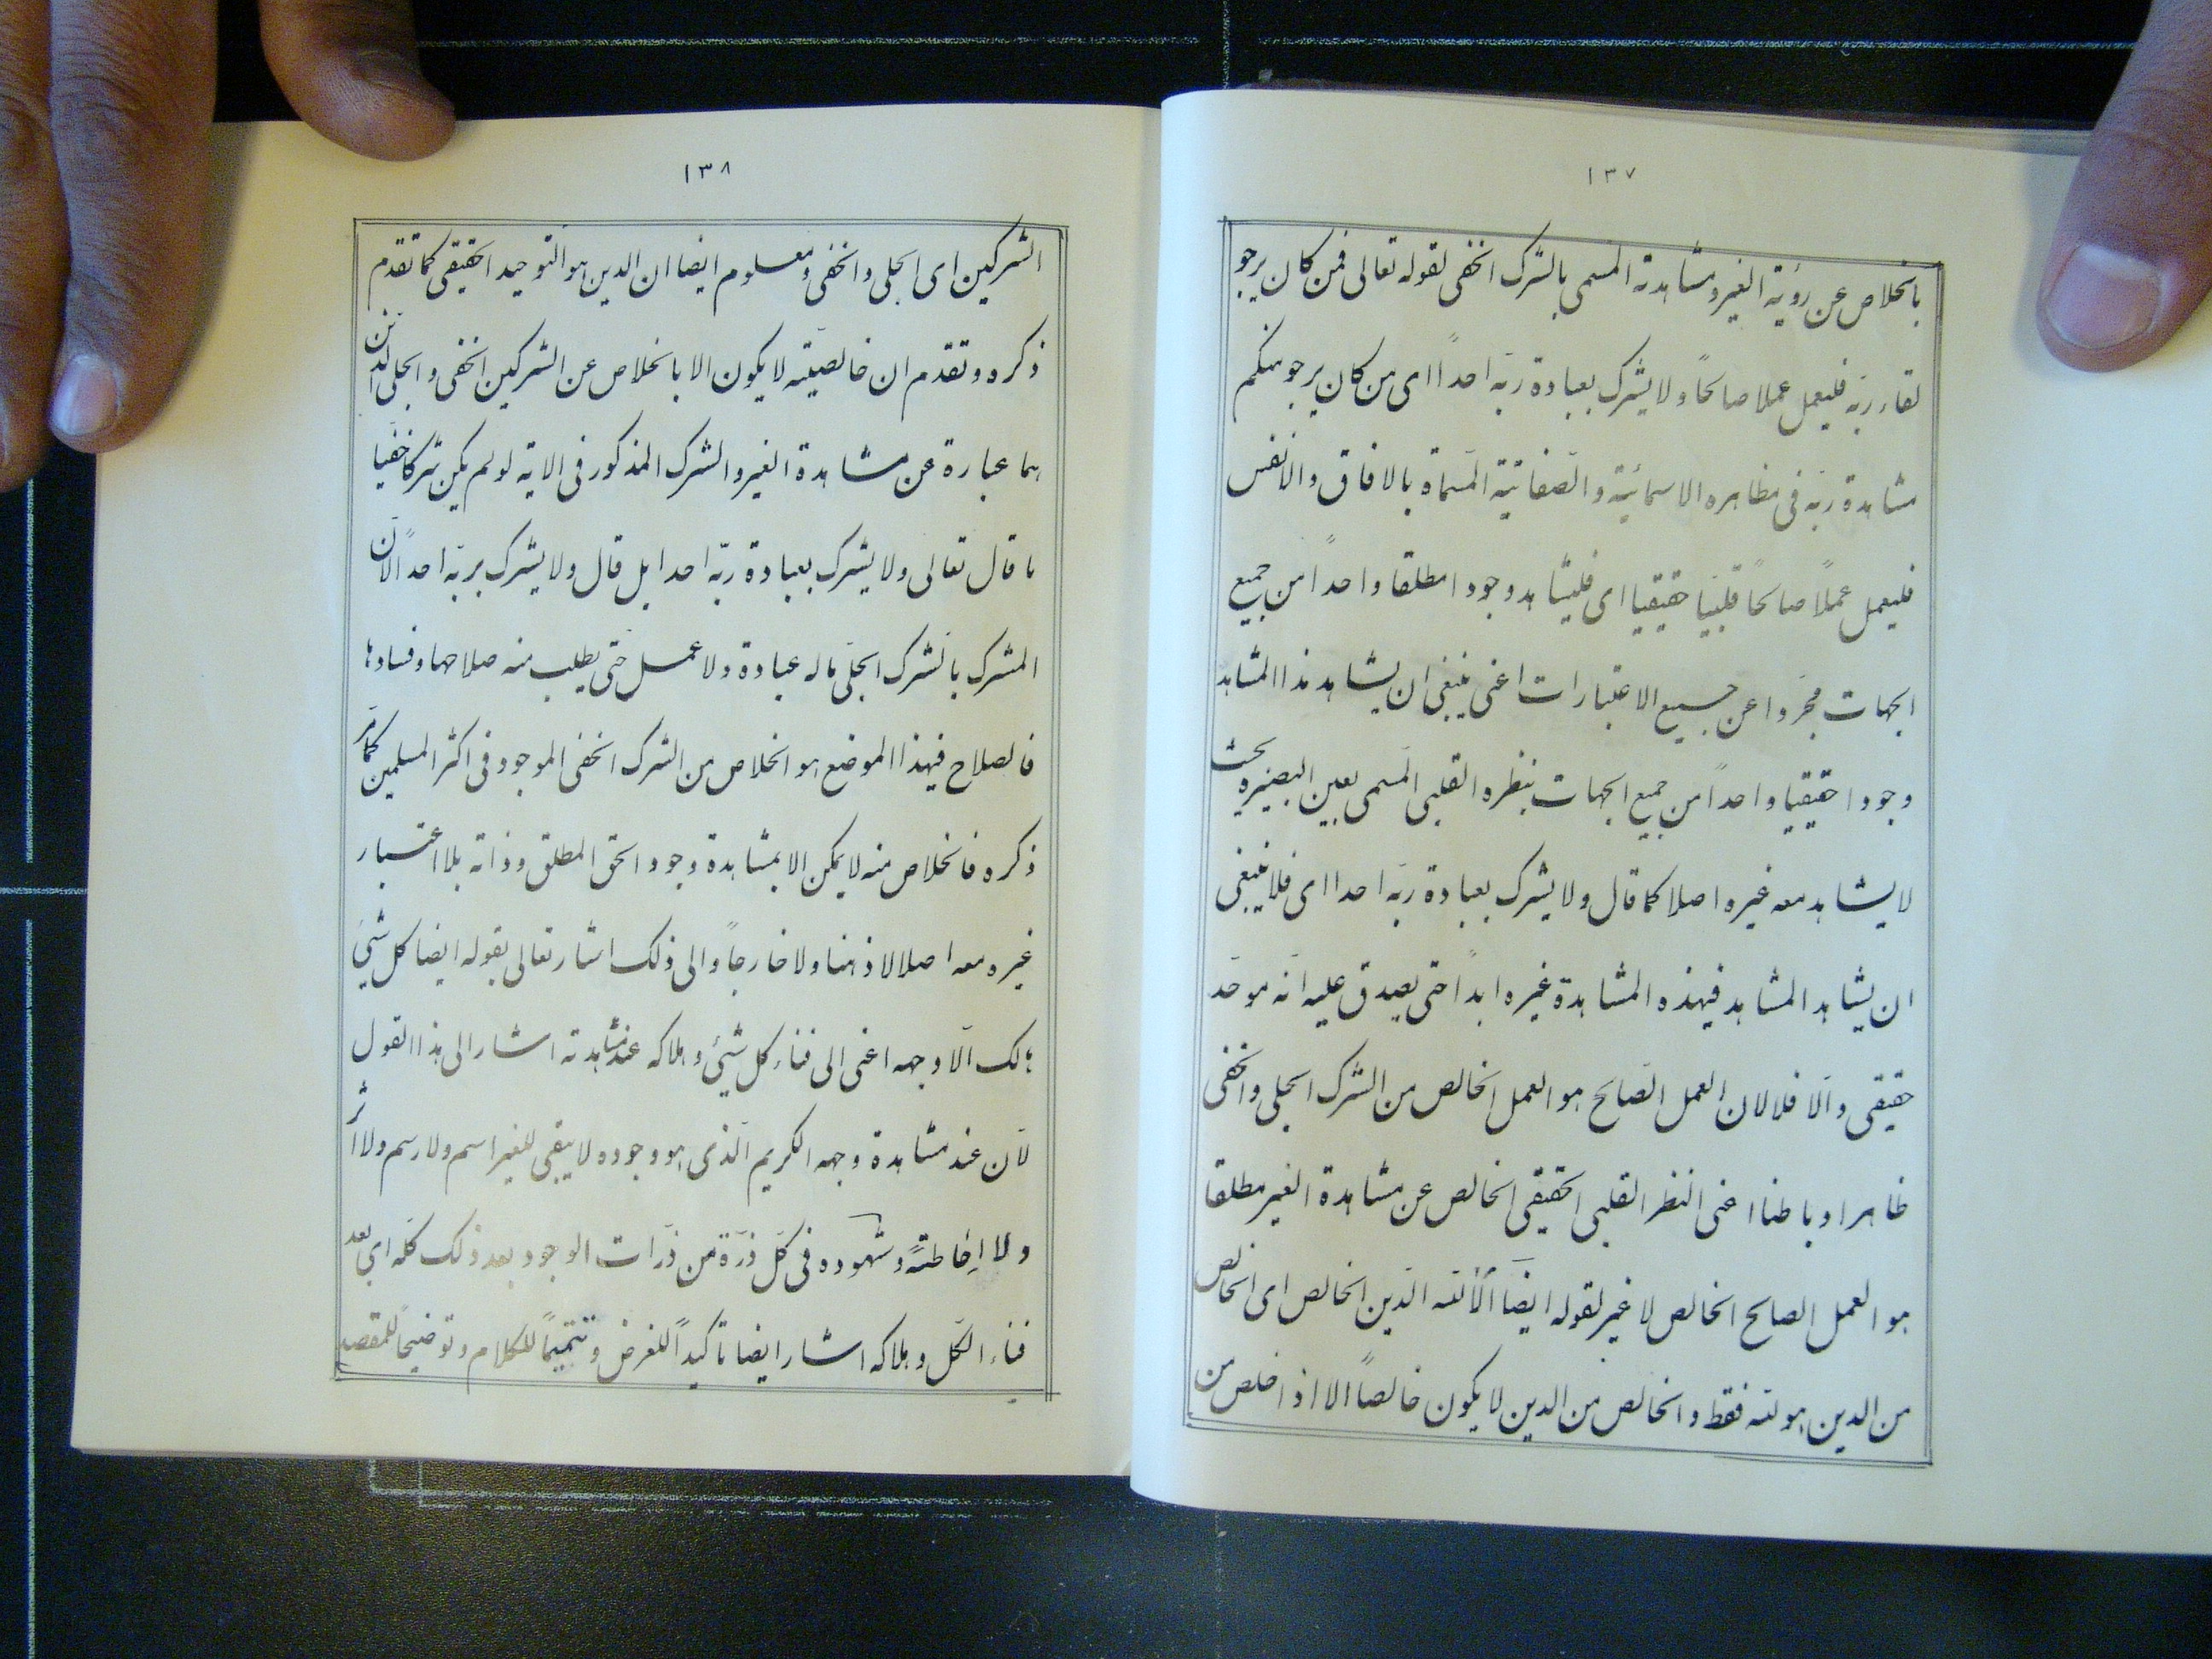 ١٣٧
بالخلاص عن رؤية الغير ومشاهدته المسمى بالشرك الخفى لقوله تعالى فمن كان يرجو
لقاء ربّه فليعمل عملا صالحاً ولا يشرك بعبادة ربّه احداً اى من كان يرجو منكم
مشاهدة ربّه فى مظاهره الاسمائيّة والصّفاتيّة المسمّاة بالافاق والانفس
فليعمل عملاً صالحاً قلبيّا حقيقيا اى فليشاهد وجودا مطلقا واحداً من جميع
الجهات مجرّدا عن جميع الاعتبارات اعنى ينبغى ان يشاهد هذا المشاهد
وجودا حقيقيا واحداً من جميع الجهات بنظره القلبى المسمى بعين البصيرة بحيث
لا يشاهد معه غيره اصلا كما قال ولا يشرك بعبادة ربّه احدا اى فلا ينبغى
ان يشاهد المشاهد فيهذه المشاهدة غيره ابداً حتى يصدق عليه انّه موحّد
حقيقى والّا فلا لان العمل الصّالح هو العمل الخالص من الشرك الجلى والخفى
ظاهرا وباطنا اعنى النظر القلبى الحقيقى الخالص عن مشاهدة الغير مطلقا
هو العمل الصالح الخالص لا غير لقوله ايضاً ألا لله الدّين الخالص اى الخالص
من الدين هو لله فقط والخالص من الدين لا يكون خالصاً الا اذ اخلص من
١٣٨
الشركين اى الجلى والخفى ومعلوم ايضا ان الدين هو التوحيد الحقيقى كما تقدم
ذكره وتقدم ان خالصيّته لا يكون الا بالخلاص عن الشركين الخفى والجلى الذين
هما عبارة عن مشاهدة الغير والشرك المذكور فى الاية لو لم يكن شركا خفيّا
ما قال تعالى ولا يشرك بعبادة ربّه احدا بل قال ولا يشرك بربّه احداً لانّ
المشرك بالشرك الجلّى ما له عبادة ولا عمل حتى يطلب منه صلاحها وفسادها
فالصلاح فيهذا الموضع هو الخلاص من الشرك الخفى الموجود فى اكثر المسلمين كما مرّ
ذكره فالخلاص منه لا يمكن الا بمشاهدة وجود الحق المطلق وذاته بلا اعتبار
غيره معه اصلا لا ذهنا ولا خارجاً والى ذلك اشار تعالى بقوله ايضا كل شيئ
هالك الّا وجهه اعنى الى فناء كل شيئ وهلاكه عند مشاهدته اشار الى هذا القول
لانّ عند مشاهدة وجهه الكريم الّذى هو وجوده لا يبقى للغير اسم ولا رسم ولا اثر
ولا احاطته وشهوده فى كلّ ذرّة من ذرّات الوجود بعد ذلك كلّه اى بعد
فناء الكل وهلاكه اشار ايضا تاكيداً للغرض وتتميماً للكلام وتوضيحاً للمقصد